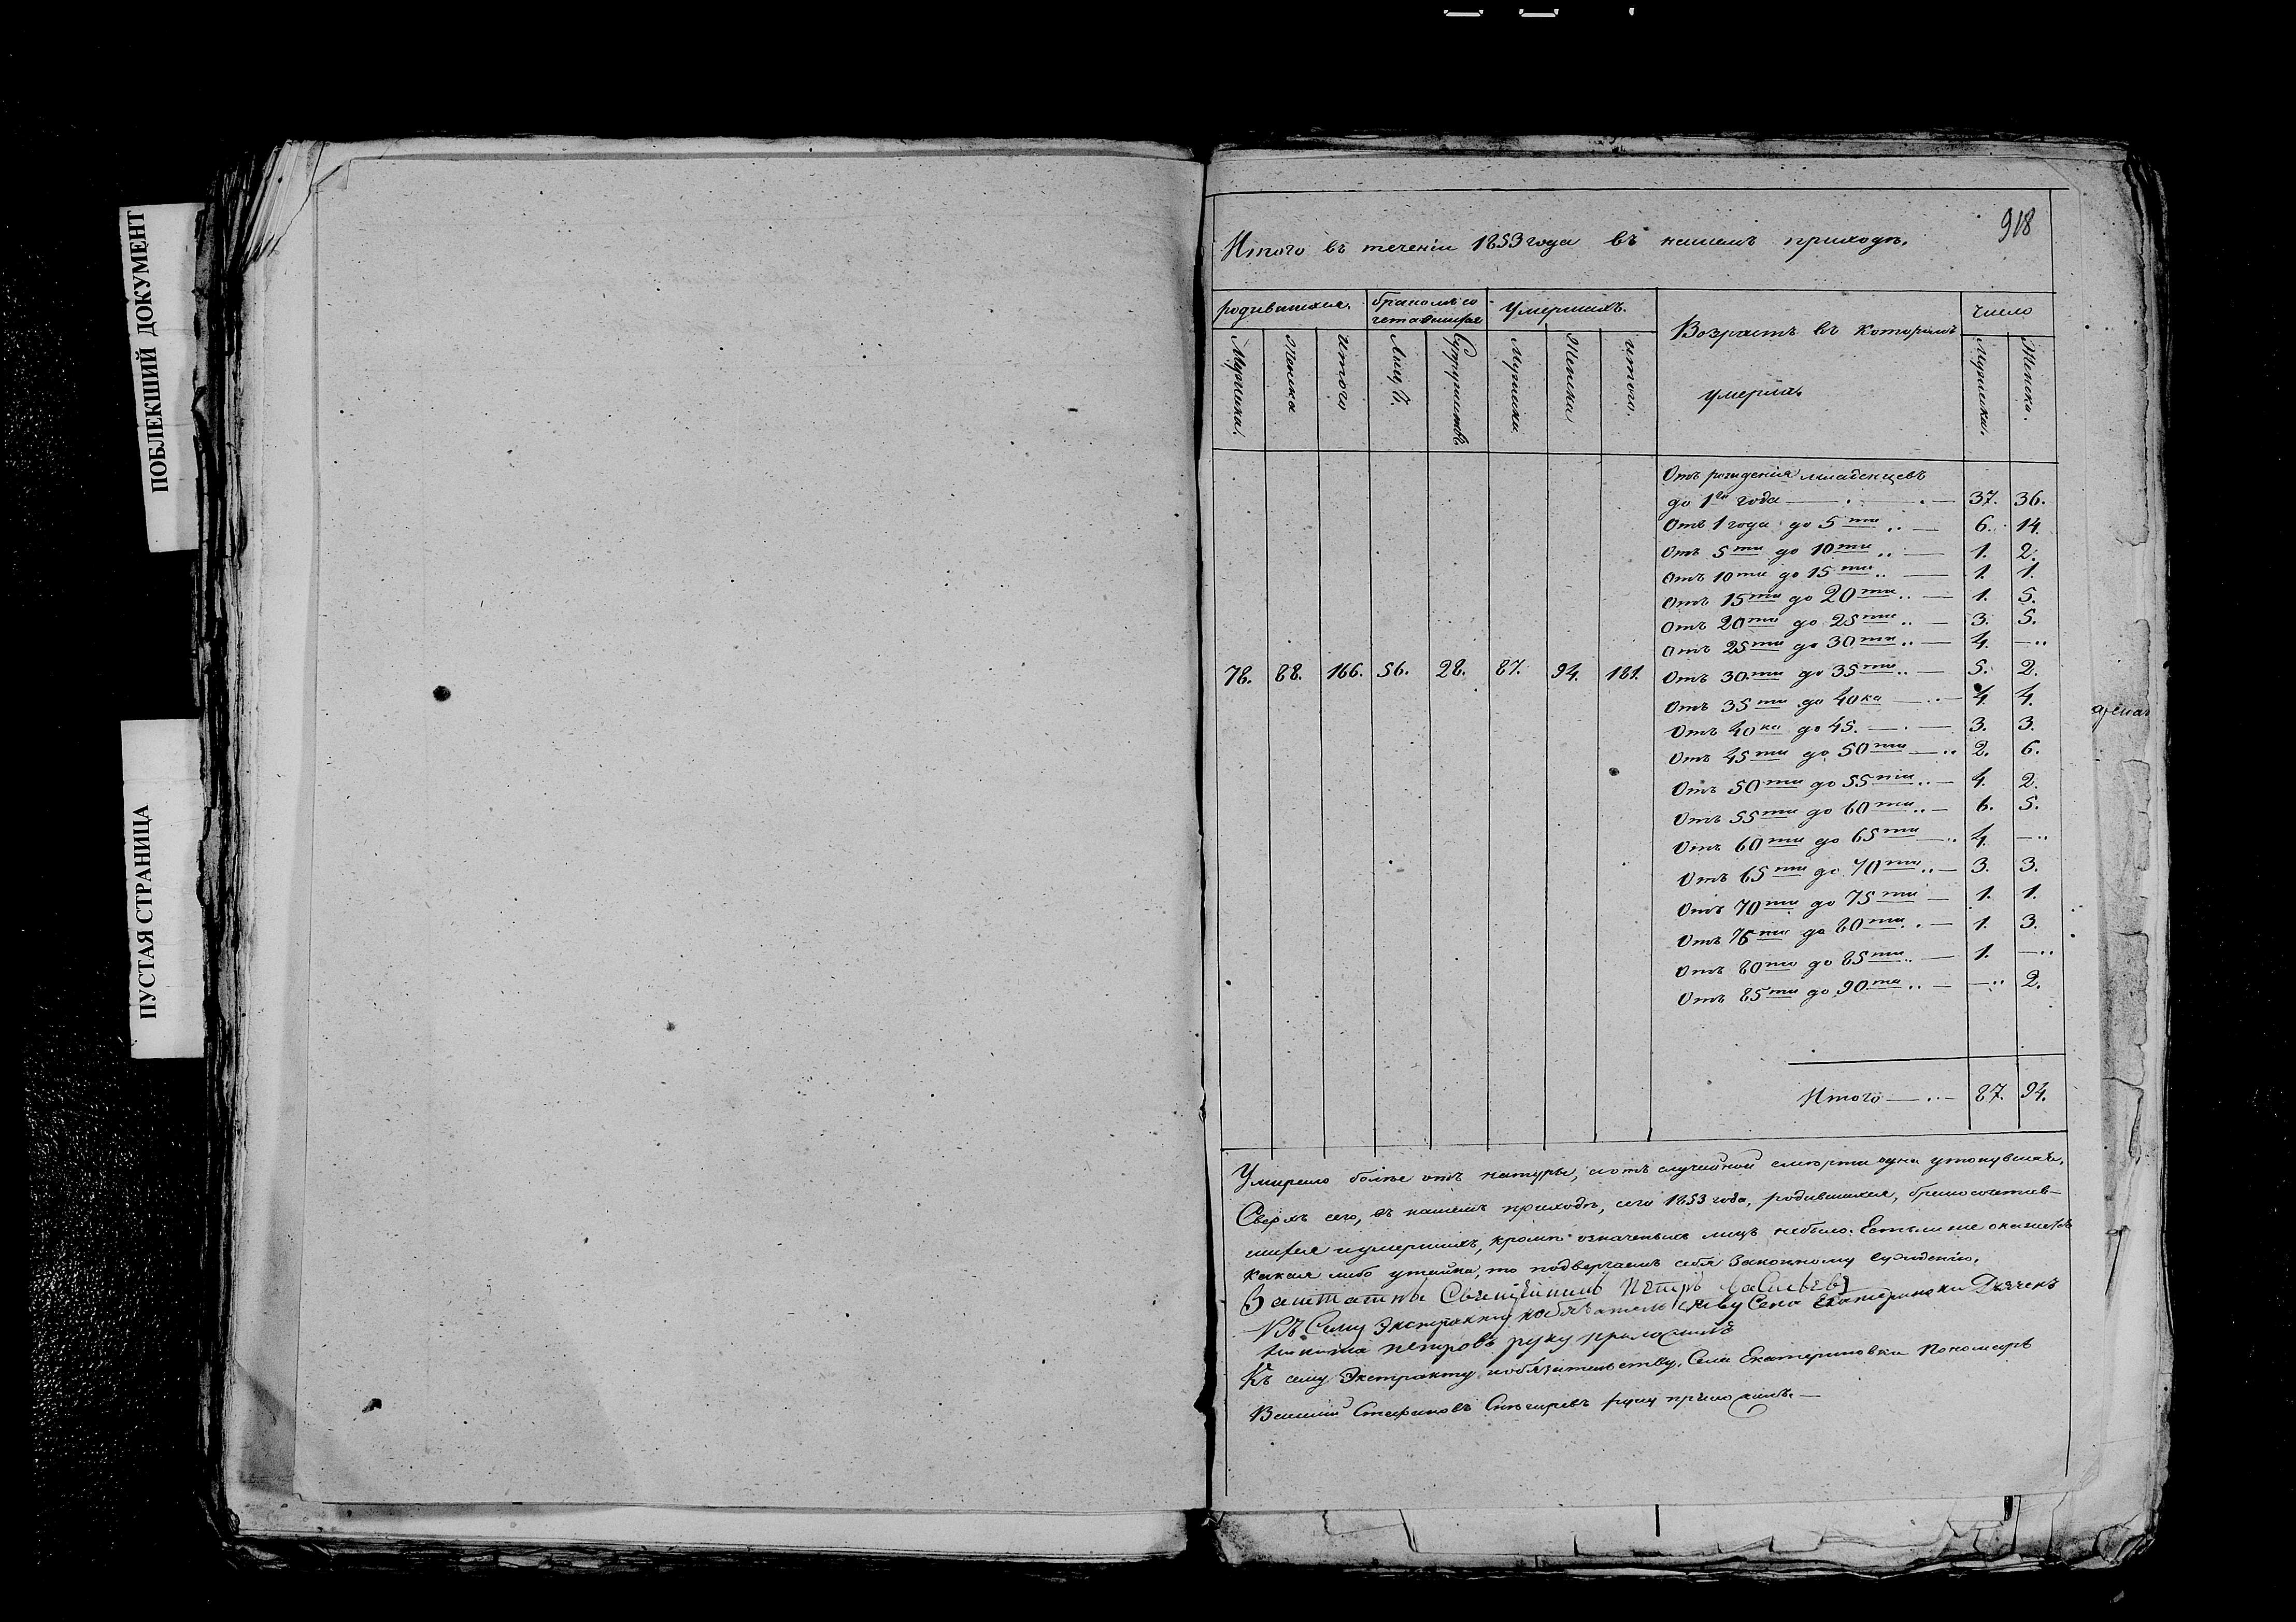 ПОБЛЕКШИЙ ДОКУМЕНТ
ПУСТАЯ СТРАНИЦА
918
Итого въ теченіи 1853 года въ нашемъ приходѣ.
родившихся. бракомъ со- четавшихся умершихъ. Возрастъ въ которомъ умерли. число
Мужеска. Женска итого Лицъ. Супружествъ Мужска Женска итого. Мужска. Женска.
Отъ рожденія младенцевъ
до 1го года — 37. 36.
Отъ 1 года до 5ти .. — 6. 14.
Отъ 5ти до 10ти .. — 1. 2.
Отъ 10ти до 15ти .. — 1. 1.
Отъ 15ти до 20ти .. — 1. 5.
Отъ 20ти до 25ти .. — 3. 5.
Отъ 25ти до 30ти .. — 4. —..
78. 88. 166. 56. 28. 87. 94. 181. Отъ 30ти до 35ти .. — 5. 2.
Отъ 35ти до 40ка — ..— 4. 4.
Отъ 40ка до 45. — . — 3. 3.
Отъ 45ти до 50ти — .. 2. 6.
Отъ 50ти до 55ти .. — 4. 2.
Отъ 55ти до 60ти .. — 6. 5.
Отъ 60ти до 65ти — .. 4. —..
Отъ 65ти до 70ти .. — 3. 3.
Отъ 70ти до 75ти — 1. 1.
Отъ 75ти до 80ти .. — 1. 3.
Отъ 80ти до 85ти .. — 1. —..
Отъ 85ти до 90та .. — —.. 2.
Итого — ..— 87. 94.
Умирало болѣе отъ натуры, а отъ случайной смерти одна утонувшая.
Сверхъ сего, въ нашемъ приходѣ, сего 1853 года, родившихся, бракосочетав-
шихся и умершихъ, кромѣ означенныхъ лицъ небыло. Естьли же окажется
какая либо утайка, то подвергаемъ себя законному сужденію.
Заштатны Священникъ Петръ Васильевъ
Къ сему Экстракту и обязательству Села Екатериновки Дьячекъ
Никита Петровъ руку приложилъ
Къ сему Экстракту и обязательству, Села Екатериновки Пономарь
Василій Стефановъ Снегиревъ руку приложилъ. —